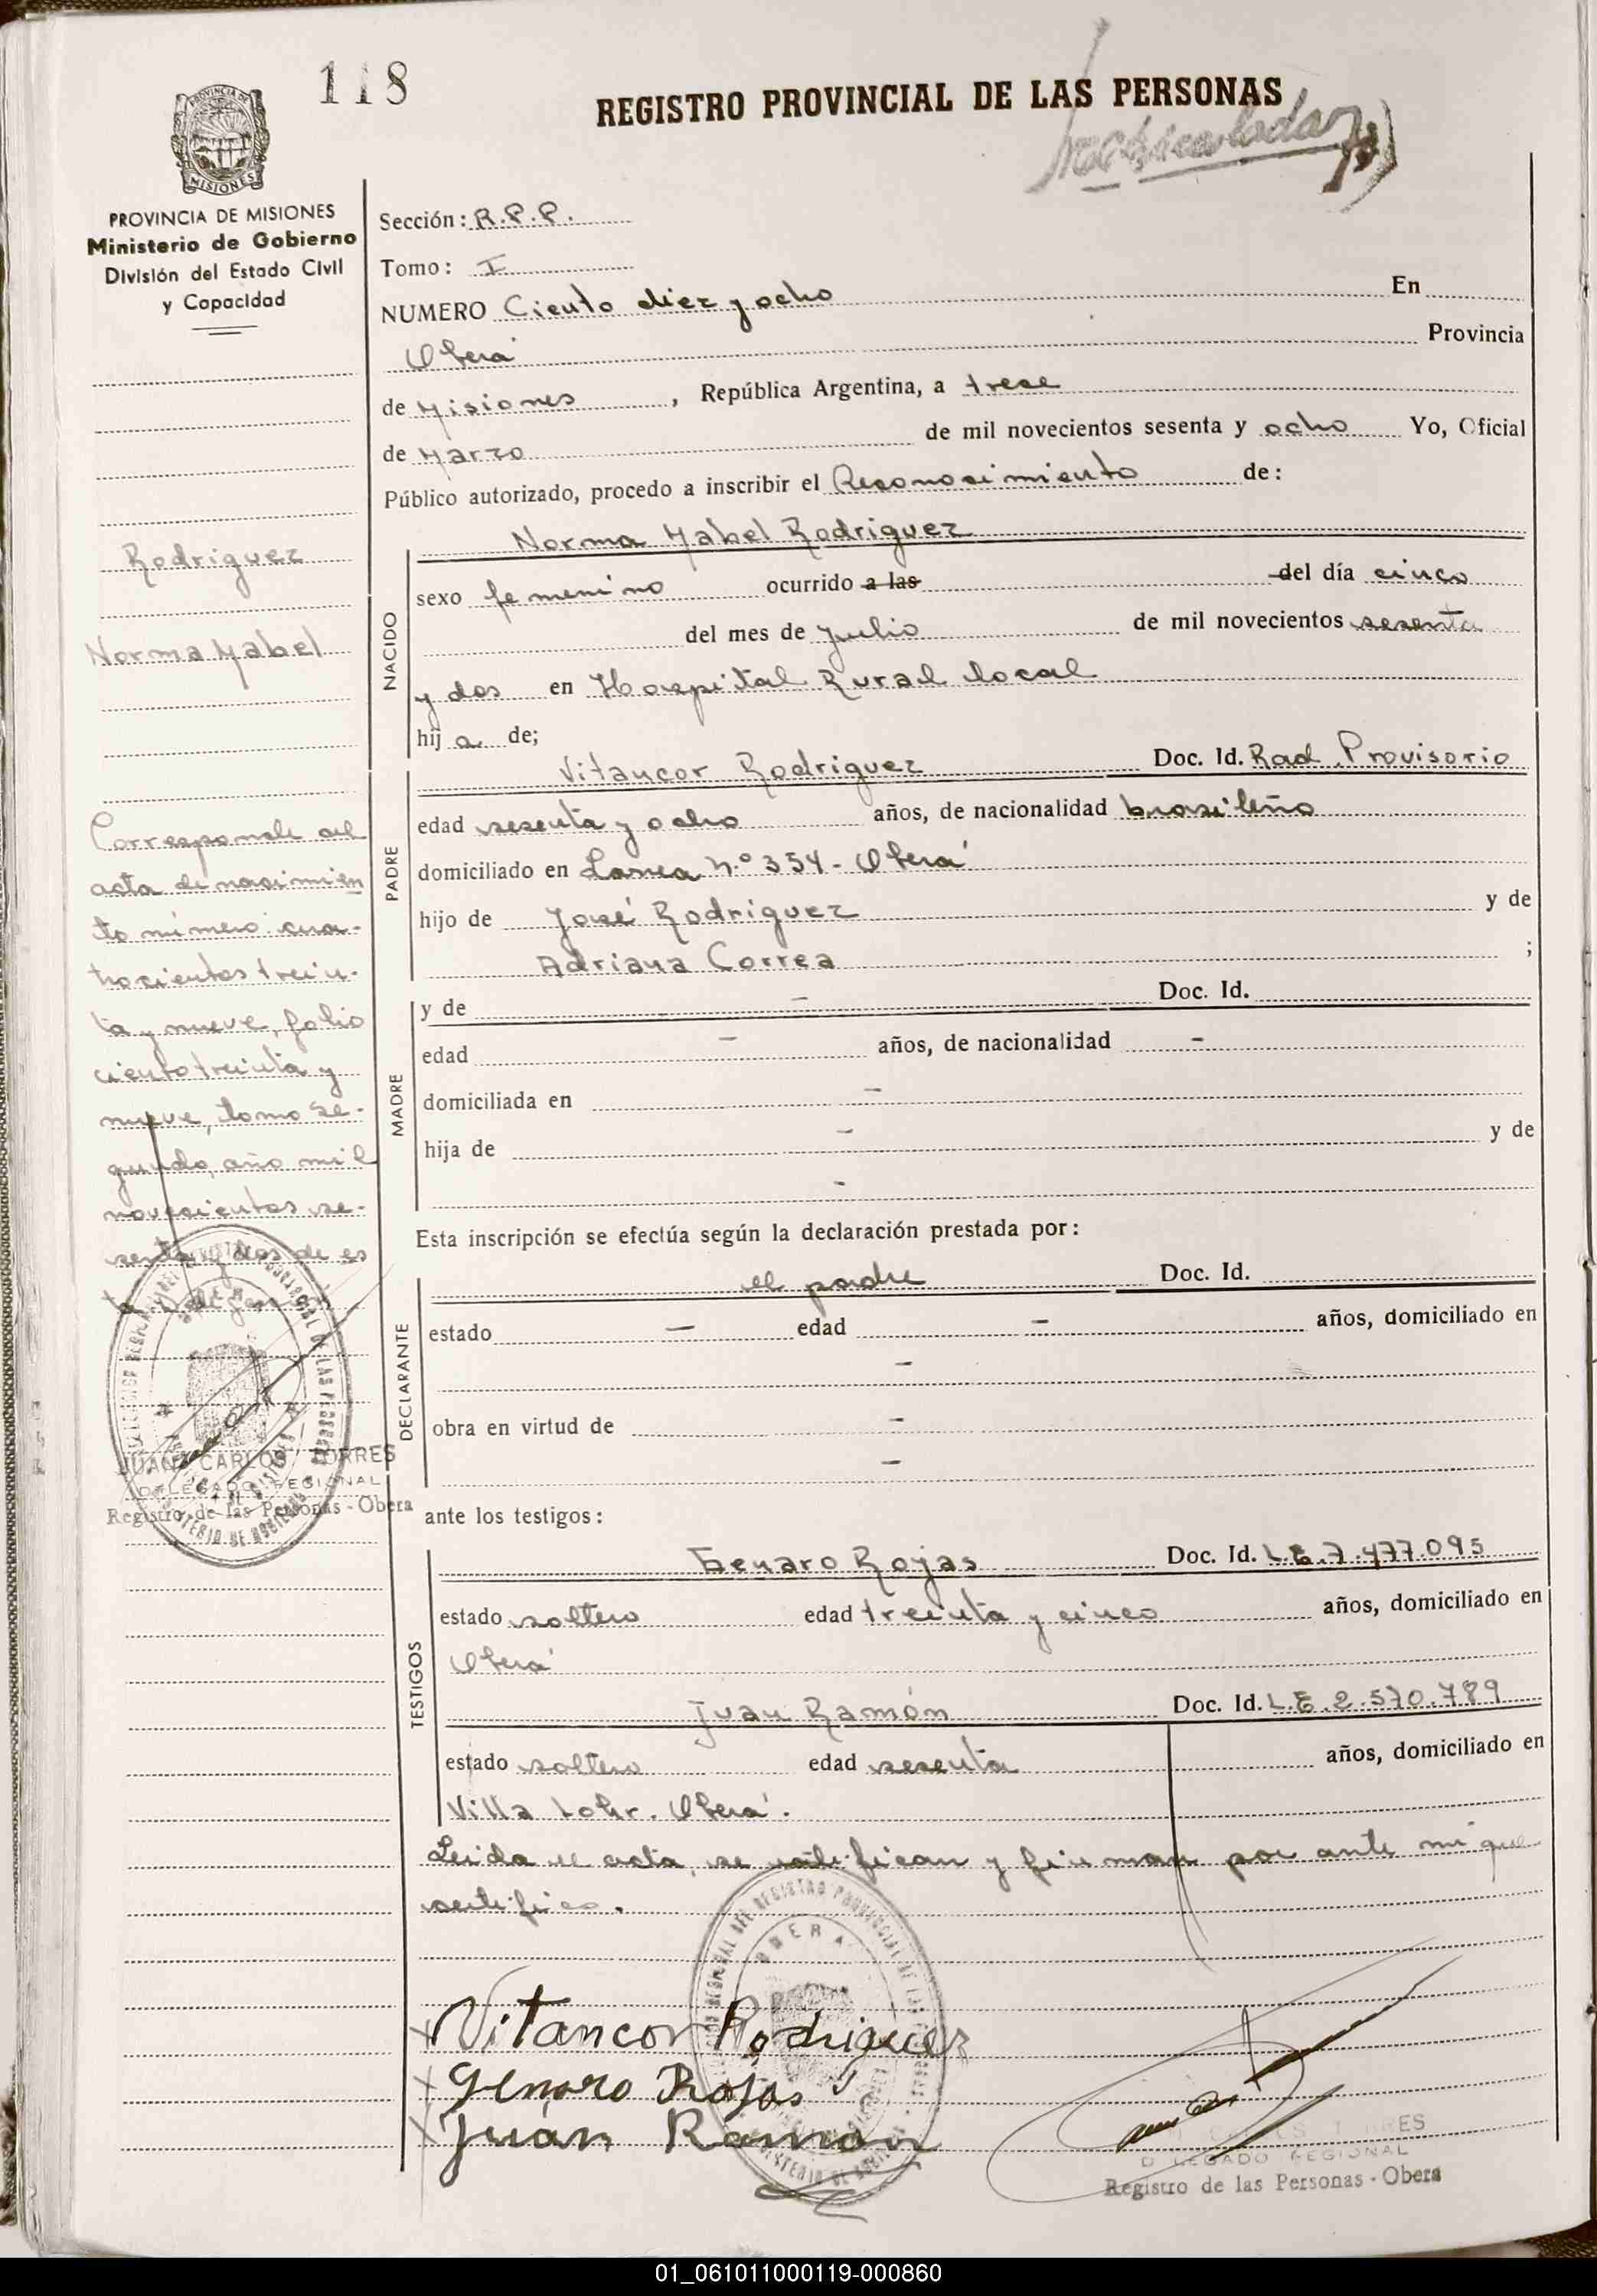 118
REGISTRO PROVINCIAL DE LAS PERSONAS
PROVINCIA DE
MISIONES
PROVINCIA DE MISIONES
Ministerio de Gobierno
División del Estado Civil
y Capacidad
Rodriguez
Norma Mabel
Corresponde al
acta de nacimien
to número cua-
trocientos trein-
ta y nueve, folio
ciento treinta y
nueve, tomo se-
gundo, año mil
novecientos se-
senta y dos de es
ta
JUAN CARLOS TORRES
DELEGADO REGIONAL
Registro de las Personas - Oberá
Sección: R.P.P.
Tomo: I
NUMERO Ciento diez y ocho En
Oberá Provincia
de Misiones, República Argentina, a trece
de Marzo de mil novecientos sesenta y ocho Yo, Oficial
Público autorizado, procedo a inscribir el Reconocimiento de:
Norma Mabel Rodriguez
NACIDO
sexo femenino ocurrido a las del día cinco
del mes de Julio de mil novecientos sesenta
y dos en Hospital Rural local
hij a de;
PADRE
Vitancor Rodriguez Doc. Id. Rad. Provisorio
edad sesenta y ocho años, de nacionalidad brasileño
domiciliado en Lanea N.º 354 - Oberá
hijo de José Rodríguez y de
Adriana Correa ;
MADRE
y de - Doc. Id.
edad - años, de nacionalidad -
domiciliada en -
hija de - y de
-
Esta inscripción se efectúa según la declaración prestada por:
DECLARANTE
el padre Doc. Id.
estado - edad - años, domiciliado en
-
obra en virtud de -
-
ante los testigos:
TESTIGOS
Genaro Rojas Doc. Id. L.E. 7.477.095
estado soltero edad treinta y cinco años, domiciliado en
Oberá
Juan Ramón Doc. Id. L.E. 2.570.789
estado soltero edad sesenta años, domiciliado en
Villa Lohr. Oberá.
Leida el acta, se ratifican y firman por ante mí que
certifico.
Vitancor Rodriguez
Genaro Rojas
Juán Ramon
DELEGADO REGIONAL
Registro de las Personas - Oberá
01_061011000119-000860